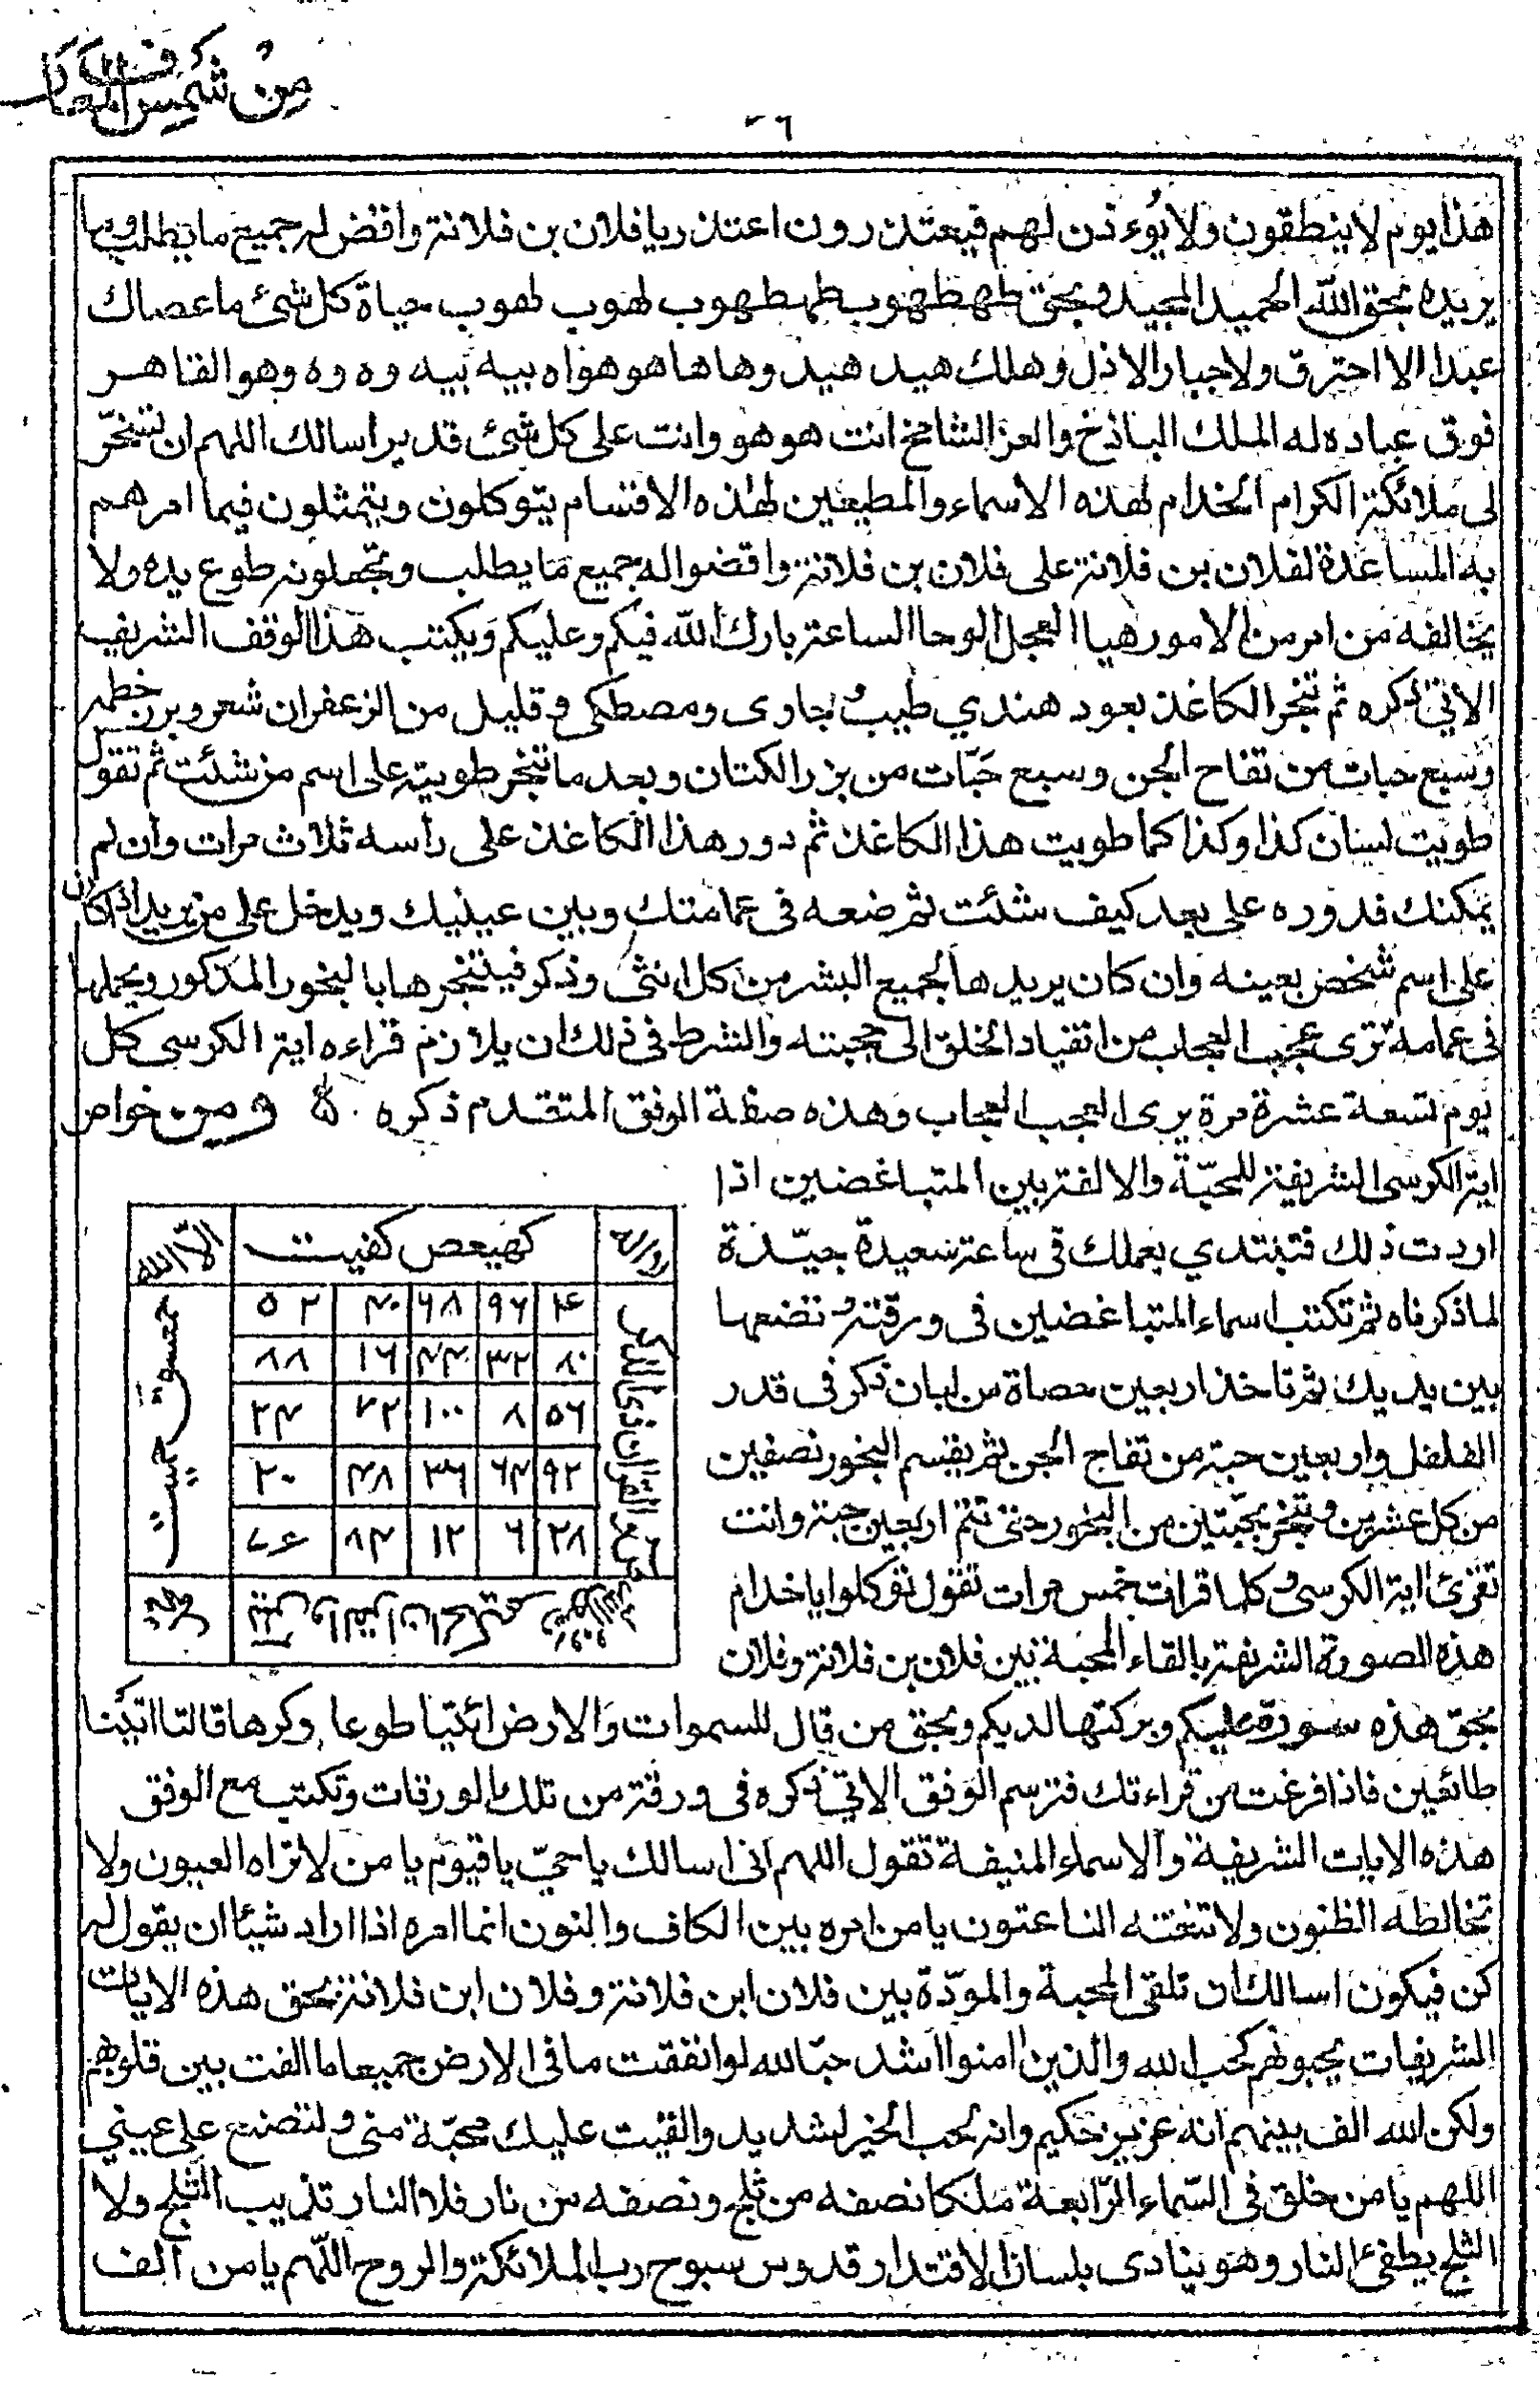 من شمس المعارف
٢٦
هذا يوم لا ينطقون ولا يوءذن لهم فيعتذرون اعتذر يا فلان بن فلانة واقض له جميع ما يطلب وما
يريده بحق الله الحميد المجيد وبحق طهطهوب طهطهوب لهوب لهوب حياة كل شئ ما عصاك
عبدا الا احترق ولا جبار الا ذل وهلك هيد هيد وها ها هو هو اه بيه بيه وه وه وهو القاهر
فوق عباده له الملك الباذخ والعز الشامخ انت هو هو وانت على كل شئ قدير اسالك اللهم ان تسخر
لى ملائكة الكرام الخدام لهذه الاسماء والمطيعين لهذه الاقسام يتوكلون ويتمثلون فيما امرهم
به المساعدة لفلان بن فلانة على فلان بن فلانة واقضوا له جميع ما يطلب وتجعلونه طوع يده ولا
يخالفه من امر من الامور هيا العجل الوحا الساعة بارك الله فيكم وعليكم ويكتب هذا الوقف الشريف
الاتي ذكره ثم تبخر الكاغذ بعود هندي طيب وجاوى ومصطكى وقليل من الزعفران شعر وبزر خطمه
وسبع حبات من تفاح الجن وسبع حبّات من بزر الكتان وبعد ما تبخر طويته على اسم من شئت ثم تقول
طويت لسنان كذا وكذا كما طويت هذا الكاغذ ثم دور هذا الكاغذ على رأسه ثلاث مرات وان لم
يمكنك فدوره على بعد كيف شئت ثم ضعه فى عمامتك وبين عينيك ويدخل على من يريد اذا كان
على اسم شخص بعينه وان كان يريدها لجميع البشر من كل انثى وذكر فيتبخرها بالبخور المذكور ويحملها
فى عمامة ترى عجب العجاب من انقياد الخلق الى محبته والشرط فى ذلك ان يلازم قراءه اية الكرسى كل
يوم تسعة عشرة مرة يرى العجب العجاب وهذه صفة الوفق المتقدم ذكره ومن خواص
اية الكرسى الشريفة للمحبّة والالفة بين المتباغضين اذا
اردت ذلك فتبتدي بعملك فى ساعة سعيدة جيّدة
لما ذكرناه ثم تكتب اسماء المتباغضين فى ورقة وتضعها
بين يديك ثم تاخذ اربعين حصاة من لبان ذكر فى قدر
الفلفل واربعين حبة من تفاح الجن ثم يقسم البخور نصفين
من كل عشرين وتبخر بحبّتين من البخور حتى تتم اربعين حبة وانت
تقرئ اية الكرسى وكلما قرات خمس مرات تقول توكلوا يا خدام
هذه الصورة الشريفة بالقاء المحبة بين فلان بن فلانة وفلان
الا الله كهيعص كفيت
٤ ٩٦ ٦٨ ٤٠ ٥٢
٨٠ ٣٢ ٤٤ ١٦ ٨٨
٥٦ ٨ ١٠٠ ٧٢ ٢٤
٩٢ ٦٤ ٣٦ ٤٨ ٢٠
٢٨ ٦ ١٢ ٨٤
ص والقران ذى الذكر
حمعسق حميت
بحق هذه سورة عليكم وبركتها لديكم وبحق من قال للسموات والارض ائتيا طوعا وكرها قالتا اتينا
طائعين فاذا فرغت من قراءتك فترسم الوفق الاتي ذكره فى ورقة من تلك الورقات وتكتب مع الوفق
هذه الايات الشريفة والاسماء المنيفة تقول اللهم انى اسالك يا حيّ يا قيوم يا من لا تراه العيون ولا
تخالطه الظنون ولا تنعته الناعتون يا من امره بين الكاف والنون انما امره اذا اراد شيئا ان يقول له
كن فيكون اسالك ان تلقى المحبة والمودّة بين فلان ابن فلانة وفلان ابن فلانة بحق هذه الايات
الشريفات يحبونهم كحب الله والذين امنوا اشد حبّا لله لو انفقت ما فى الارض جميعا ما الفت بين قلوبهم
ولكن الله الف بينهم انه عزيز حكيم وانه لحب الخير لشديد والقيت عليك محبّة منى ولتصنع على عيني
اللهم يا من خلق فى السّماء الرّابعة ملكا نصفه من ثلج ونصفه من نار فلا النار تذيب الثلج ولا
الثلج يطفئ النار وهو ينادى بلسان الاقتدار قدوس سبوح رب الملائكة والروح اللّهم يا من الف